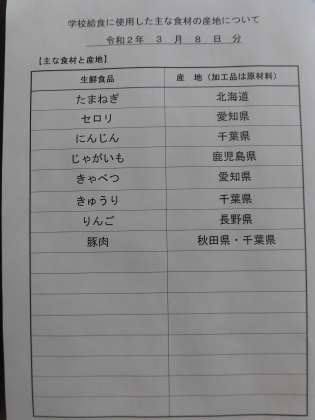 学校給食に使用した主な食材の産地について
令和2年 3 月 8 日 分
【主な食材と産地】
生鮮食品 産 地（加工品は原材料）
たまねぎ 北海道
セロリ 愛知県
にんじん 千葉県
じゃがいも 鹿児島県
きゃべつ 愛知県
きゅうり 千葉県
りんご 長野県
豚肉 秋田県・千葉県